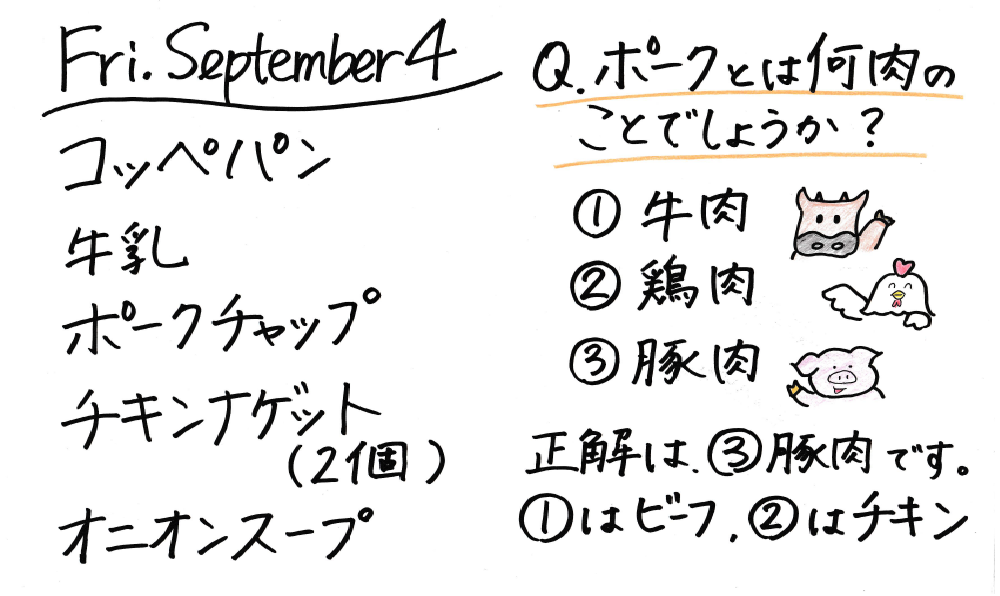 Fri. September 4
コッペパン
牛乳
ポークチャップ
チキンナゲット
(2個)
オニオンスープ
Q.ポークとは何肉の
ことでしょうか?
① 牛肉
② 鶏肉
③ 豚肉
正解は、③豚肉です。
①はビーフ、②はチキン